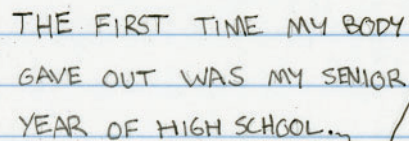 THE FIRST TIME MY BODY
GAVE OUT WAS MY SENIOR
YEAR OF HIGH SCHOOL.